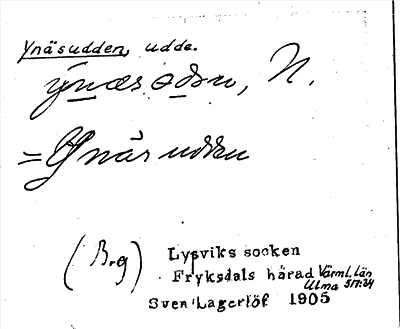 Ynäsudden, udde.
ýnæs odən, N.
= Ynäsudden
(Brg)
Lysviks socken
Fryksdals härad Värml. län
Ulma 517:24
Sven Lagerlöf 1905